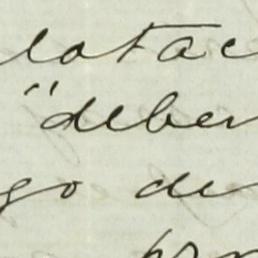 latac
"deber
go de